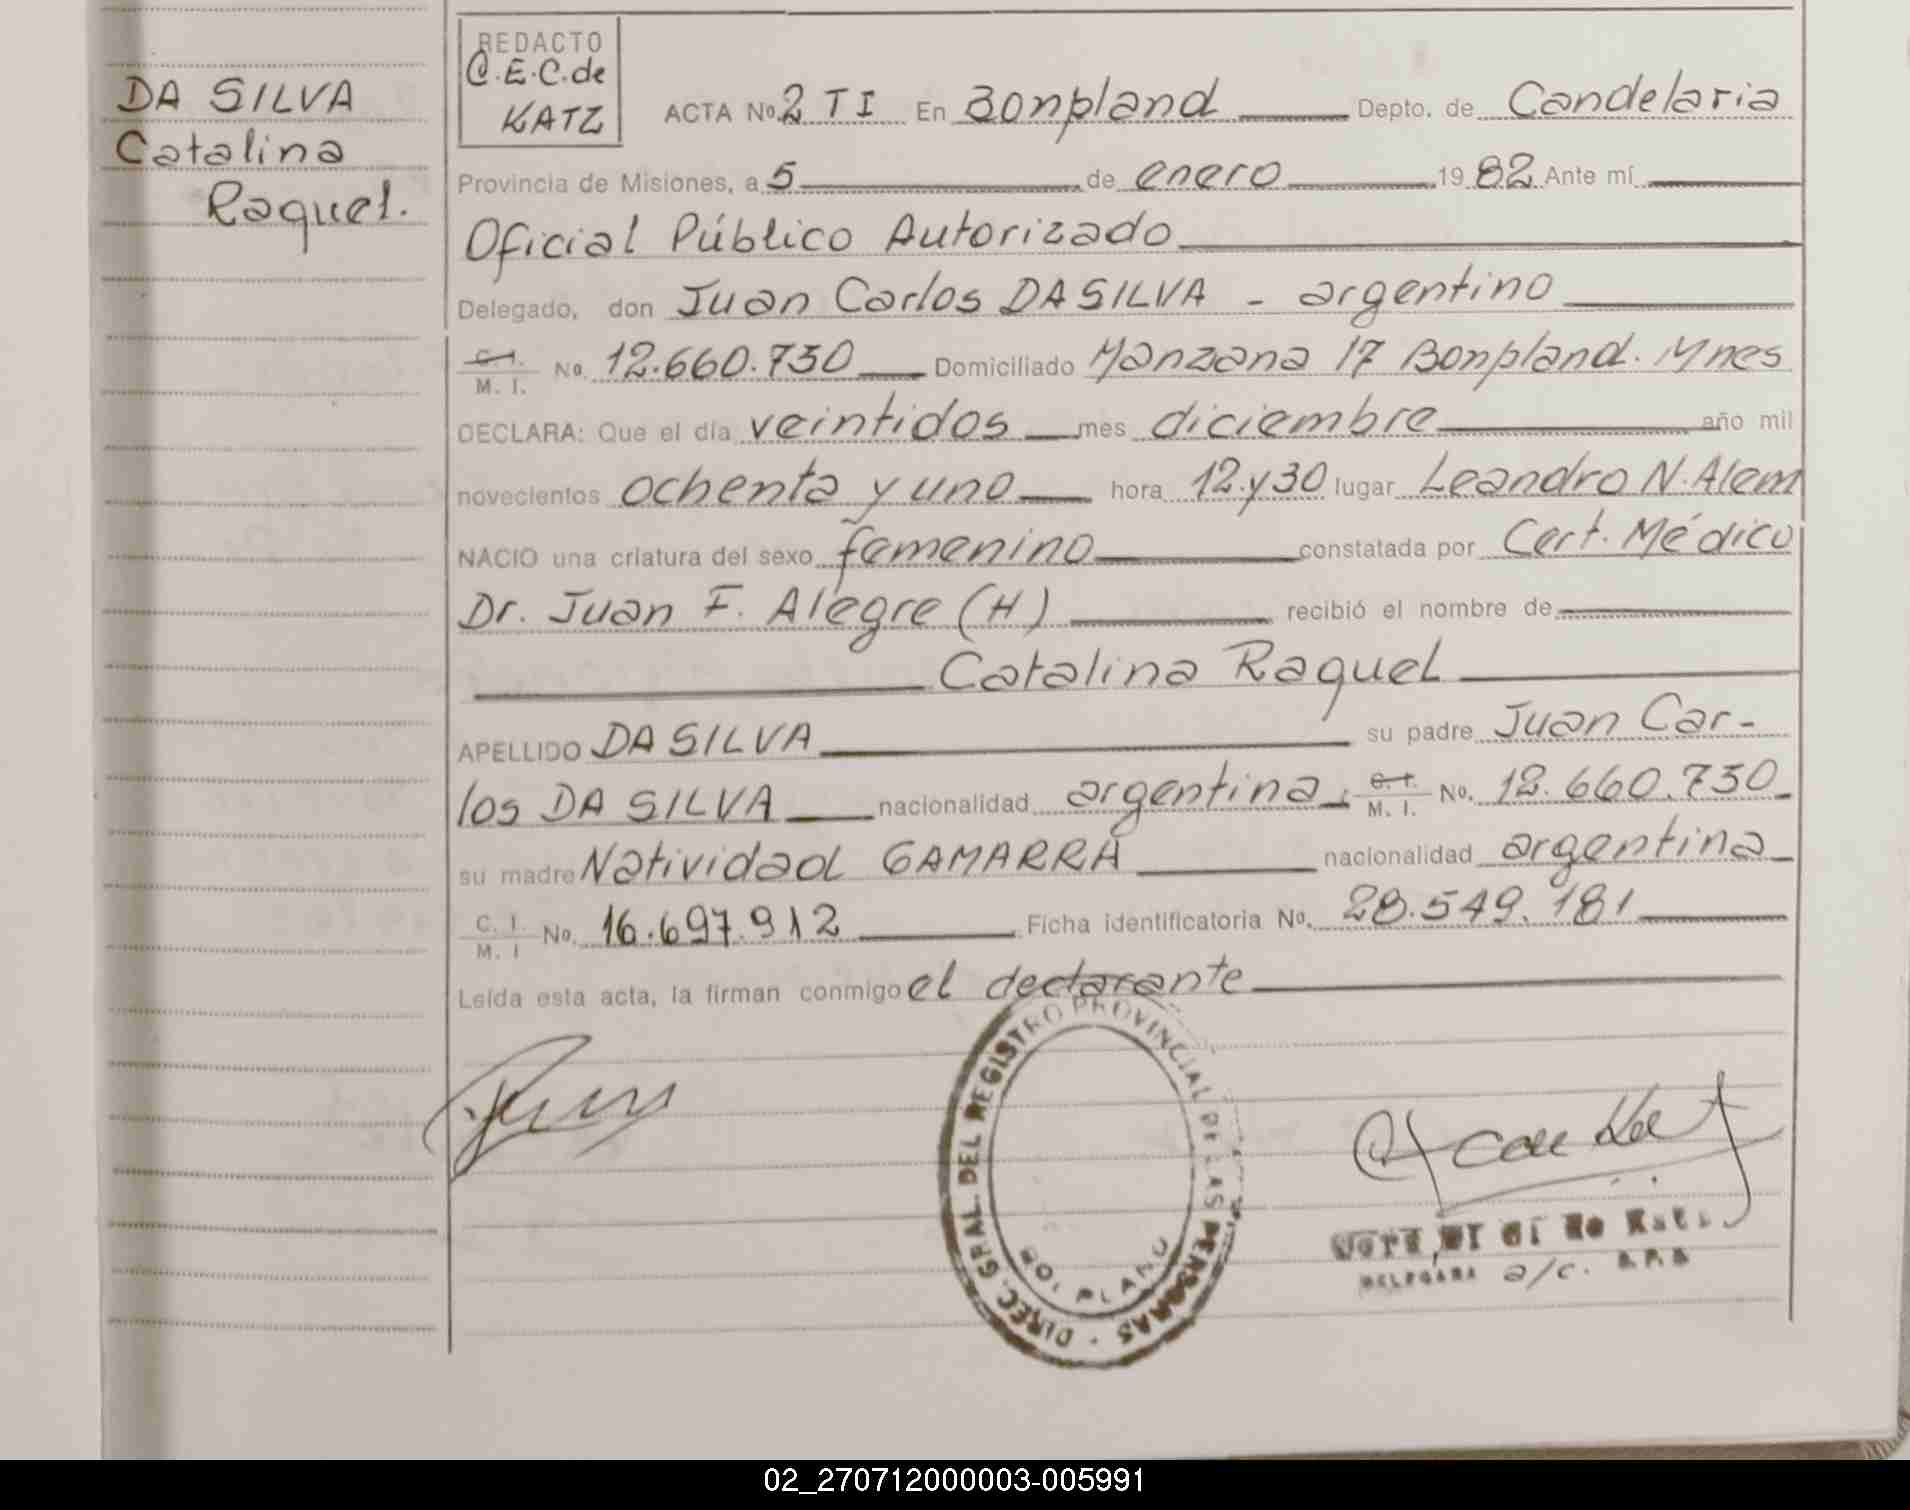 DA SILVA
Catalina
Raquel.
REDACTO
C.E.C. de
KATZ
ACTA No. 2 TI En Bonpland Depto. de Candelaria
Provincia de Misiones, a 5 de enero 1982 Ante mí
Oficial Público Autorizado
Delegado, don Juan Carlos DA SILVA - argentino
C.I. / M. I. No. 12.660.730 Domiciliado Manzana 17 Bonpland. Mnes
DECLARA: Que el día veintidos mes diciembre año mil
novecientos ochenta y uno hora 12 y 30 lugar Leandro N. Alem
NACIO una criatura del sexo femenino constatada por Cert. Médico
Dr. Juan F. Alegre (H) recibió el nombre de
Catalina Raquel
APELLIDO DA SILVA su padre Juan Car-
los DA SILVA nacionalidad argentina, C.I. / M. I. No. 12.660.730
su madre Natividad GAMARRA nacionalidad argentina
C. I. / M. I No. 16.697.912 Ficha identificatoria No. 28.549.181
Leída esta acta, la firman conmigo el declarante
DIREC. GRAL. DEL REGISTRO PROVINCIAL DE LAS PERSONAS
DELEGADA a/c.
02_270712000003-005991